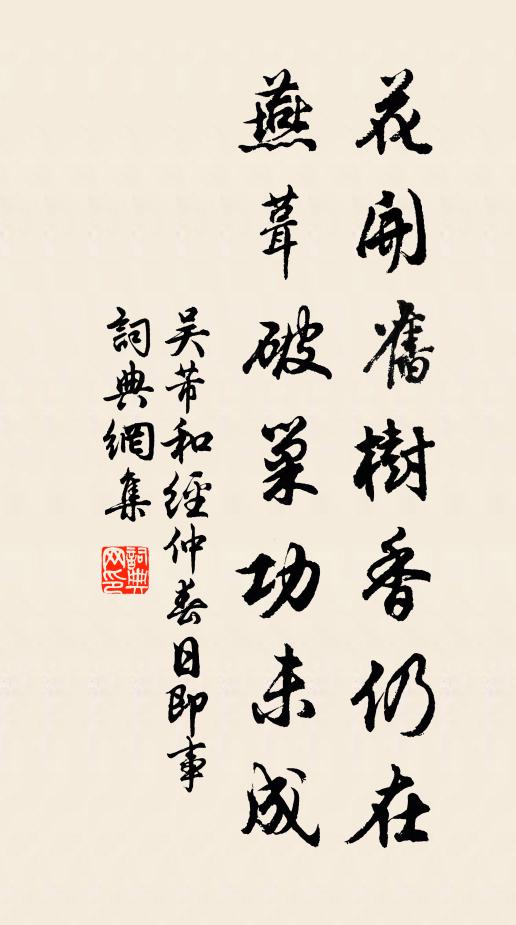 花開舊樹香仍在
燕葺破巢功未成
吳芾和經仲春日即事
詞典網集
詞典網印